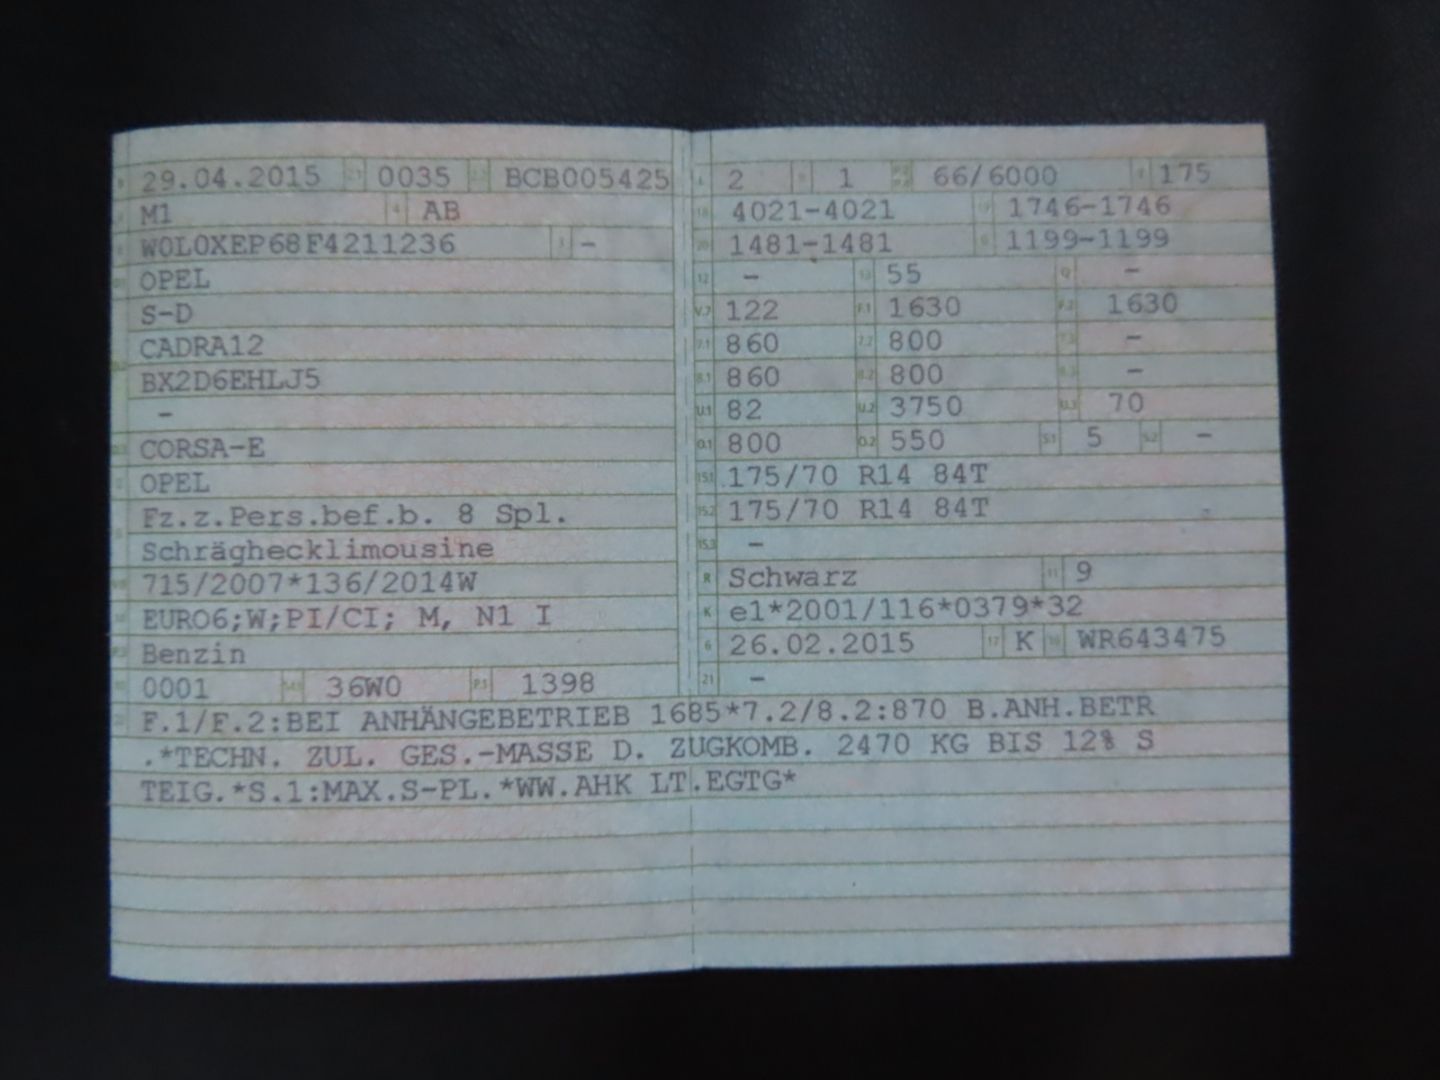 29.04.2015 0035 BCB005425
M1 4 AB
W0L0XEP68F4211236 3 -
OPEL
S-D
CADRA12
BX2D6EHLJ5
-
CORSA-E
OPEL
Fz.z.Pers.bef.b. 8 Spl.
Schräghecklimousine
715/2007*136/2014W
EURO6;W;PI/CI; M, N1 I
Benzin
0001 36W0 P.1 1398
L 2 9 1 66/6000 T 175
18 4021-4021 19 1746-1746
20 1481-1481 G 1199-1199
12 - 13 55 Q -
V.7 122 F.1 1630 F.2 1630
7.1 860 7.2 800 7.3 -
8.1 860 8.2 800 8.3 -
U.1 82 U.2 3750 U.3 70
O.1 800 O.2 550 S.1 5 S.2 -
15.1 175/70 R14 84T
15.2 175/70 R14 84T
15.3 -
R Schwarz 11 9
K e1*2001/116*0379*32
6 26.02.2015 17 K 16 WR643475
21 -
F.1/F.2:BEI ANHÄNGEBETRIEB 1685*7.2/8.2:870 B.ANH.BETR
.*TECHN. ZUL. GES.-MASSE D. ZUGKOMB. 2470 KG BIS 12% S
TEIG.*S.1:MAX.S-PL.*WW.AHK LT.EGTG*